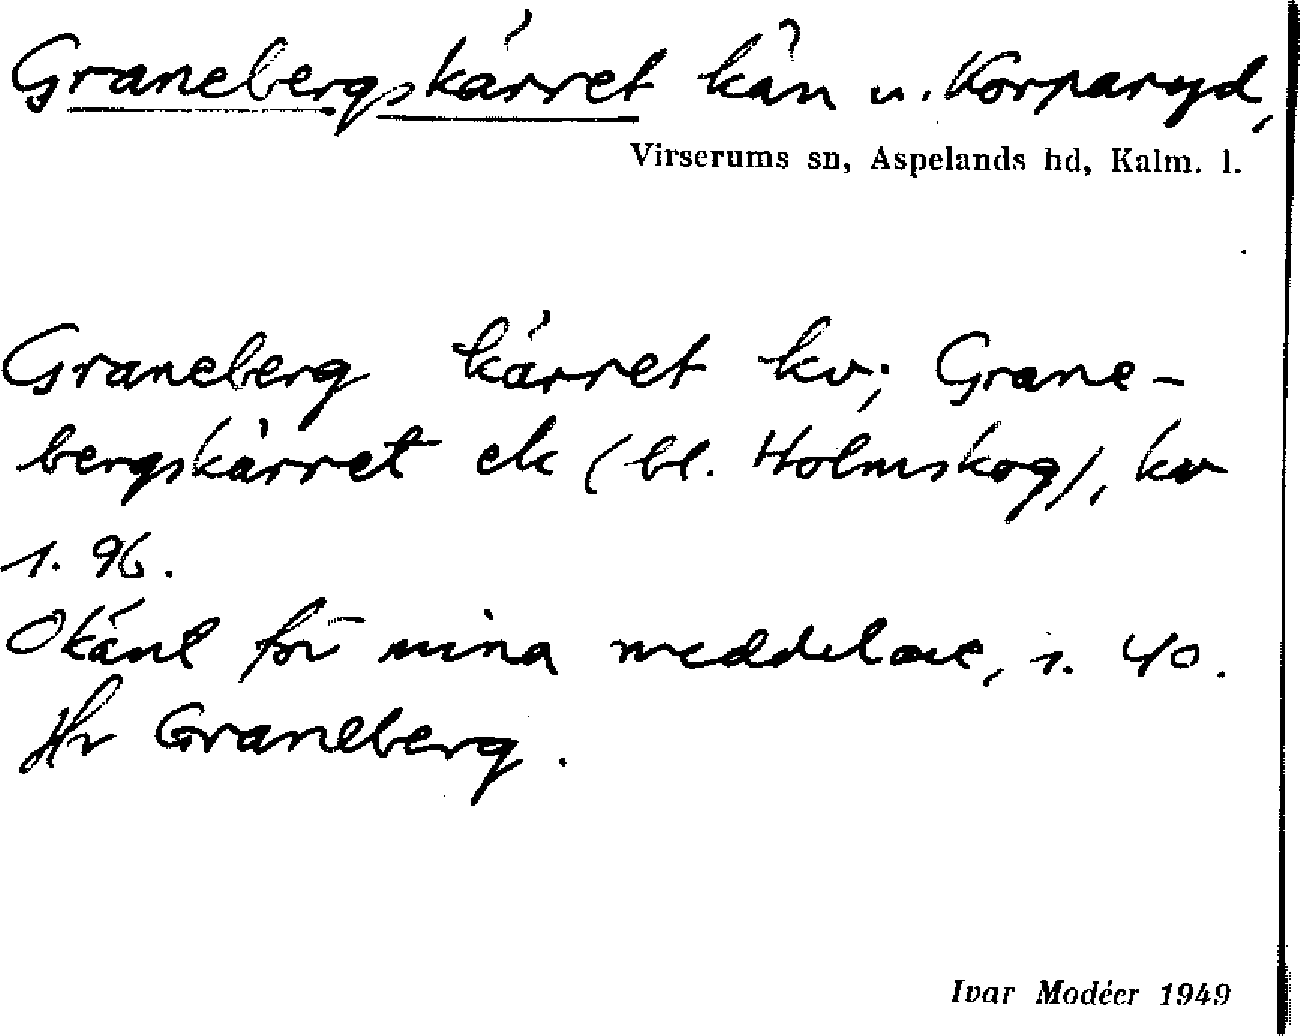 Granebergskärret kän u. Korparyd,
Virserums sn, Aspelands hd, Kalm. l.
Graneberg kärret kv; Grane-
bergskärret ek (bl. Holmskog), kv
s. 96.
Okänt för mina meddelare, s. 40.
Hr Graneberg.
Ivar Modéer 1949